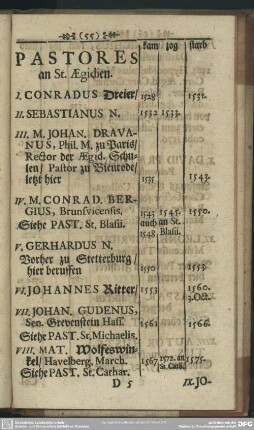 (55)
kam zog starb
PASTORES
an St. Ægidien.
I. CONRADUS Dreier/ 1528 1531.
II. SEBASTIANUS N. 1532 1533.
III. M. JOHAN. DRAVA-
NUS, Phil. M. zu Paris/
Rector der Ægid. Schu-
len/ Pastor zu Bienrode/
jetzt hier 1535 1543.
IV. M. CONRAD. BER-
GIUS, Brunsvicensis. 1543 1545. 1550.
Siehe PAST. St. Blasii. auch an St.
1548 Blasii.
V. GERHARDUS N.
Vorher zu Stetterburg/
hier beruffen 1550 1553.
VI. JOHANNES Ritter/ 1553 1560.
3. Oct.
VII. JOHAN. GUDENUS,
Sen. Grevenstein Hass. 1561 1566.
Siehe PAST. St. Michaelis.
VIII. MAT. Wolfeswin-
kel/ Havelberg. March. 1567 1572. an 1575.
Siehe PAST. St. Cathar. St. Cath.
D 5 IX. JO-
DFG